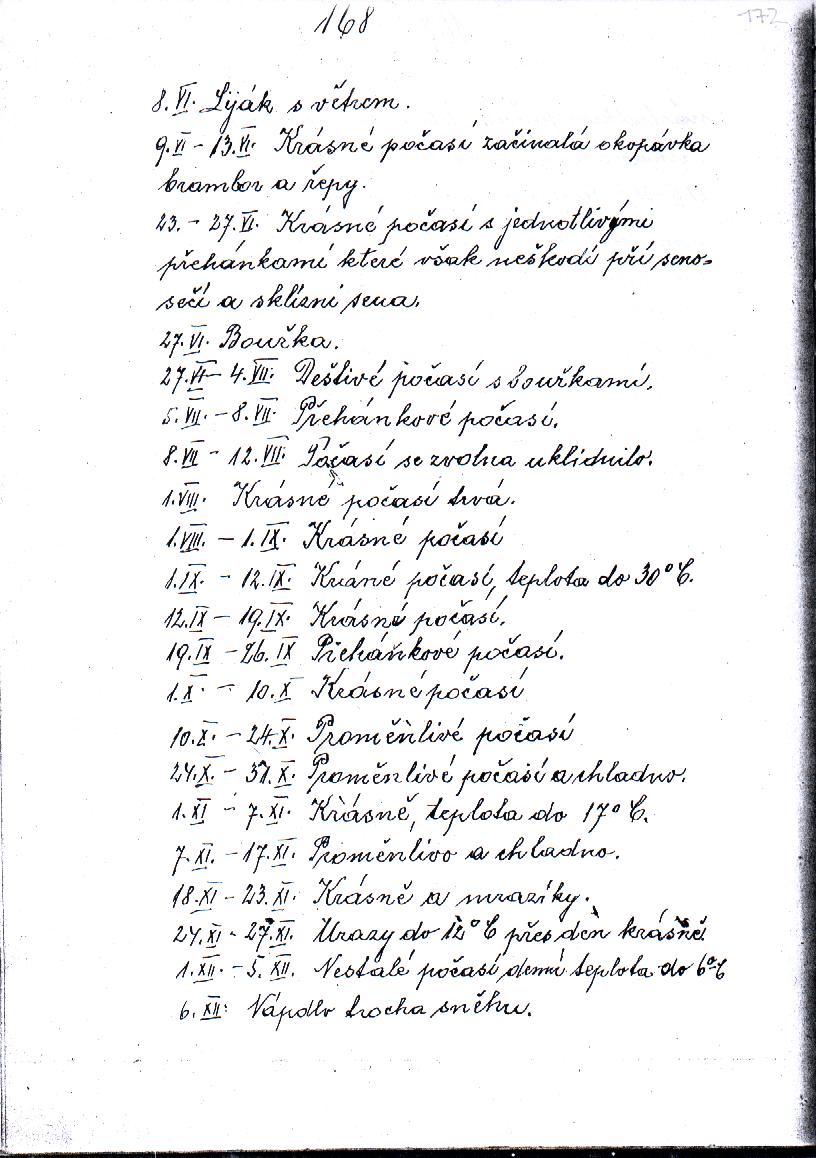 168
172
8.VI. Liják s větrem.
9.VI – 13.VI. Krásné počasí začínalá okopávka
brambor a řepy.
23. – 27.VI. Krásné počasí s jednotlivými
přehánkamí které však neškodí při seno=
sečí a sklízni sena.
27.VI. Bouřka.
27.VI – 4.VII. Deštivé počasí s bouřkamí.
5.VII. – 8.VII. Přehánkové počasí.
8.VII – 12.VII. Počasí se zvolna uklidnilo.
1.VIII. Krásné počasí trvá.
1.VIII. – 1.IX. Krásné počasí
1.IX. – 12.IX. Kráné počasí, teplota do 30° C.
12.IX – 19.IX. Krásné počasí.
19.IX – 26.IX Přehánkové počasí.
1.X. – 10.X Krásné počasí
10.X. – 24.X. Proměnlivé počasí
24.X. – 31.X. Proměnlivé počasí a chladno.
1.XI – 7.XI. Krásně, teplota do 17° C.
7.XI. – 17.XI. Proměnlivo a chladno.
18.XI – 23.XI. Krásně a mrazíky.
24.XI – 27.XI. Mrazy do 12° C přes den krásně.
1.XII. – 5.XII. Nestálé počasí denní teplota do 6° C
6.XII. Nápdlo trocha sněhu.